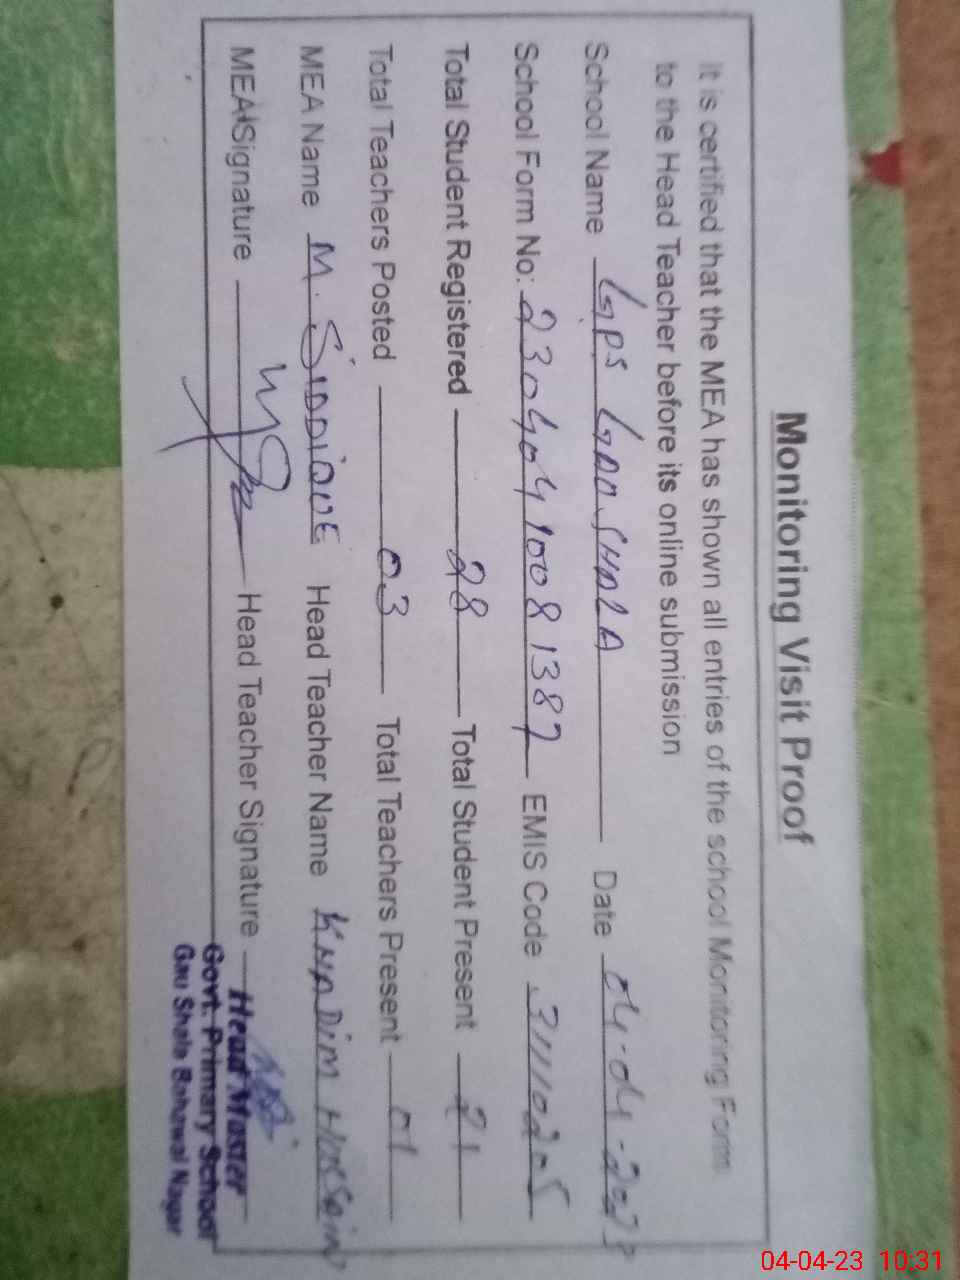 Monitoring Visit Proof
It is certified that the MEA has shown all entries of the school Monitoring Form
to the Head Teacher before its online submission
School Name GPS GAO.SHALA Date 04-04-2023
School Form No: 23040410081387 EMIS Code 31110205
Total Student Registered 28 Total Student Present 21
Total Teachers Posted 03 Total Teachers Present 01
MEA Name M. SIDDIQUE Head Teacher Name KHADIM HUSSAIN
MEA Signature Head Teacher Signature
Head Master
Govt. Primary School
Gau Shala Bahawal Nagar
04-04-23 10:31